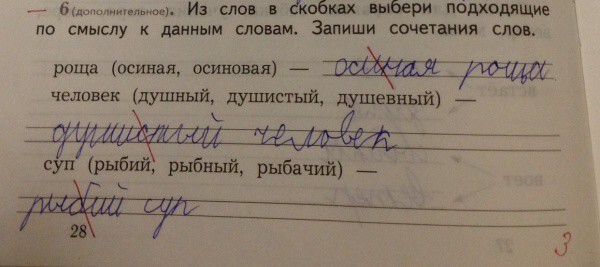 6 (дополнительное). Из слов в скобках выбери подходящие
по смыслу к данным словам. Запиши сочетания слов.
роща (осиная, осиновая) — осиная роща
человек (душный, душистый, душевный) —
душистый человек
суп (рыбий, рыбный, рыбачий) —
рыбий суп
28
3